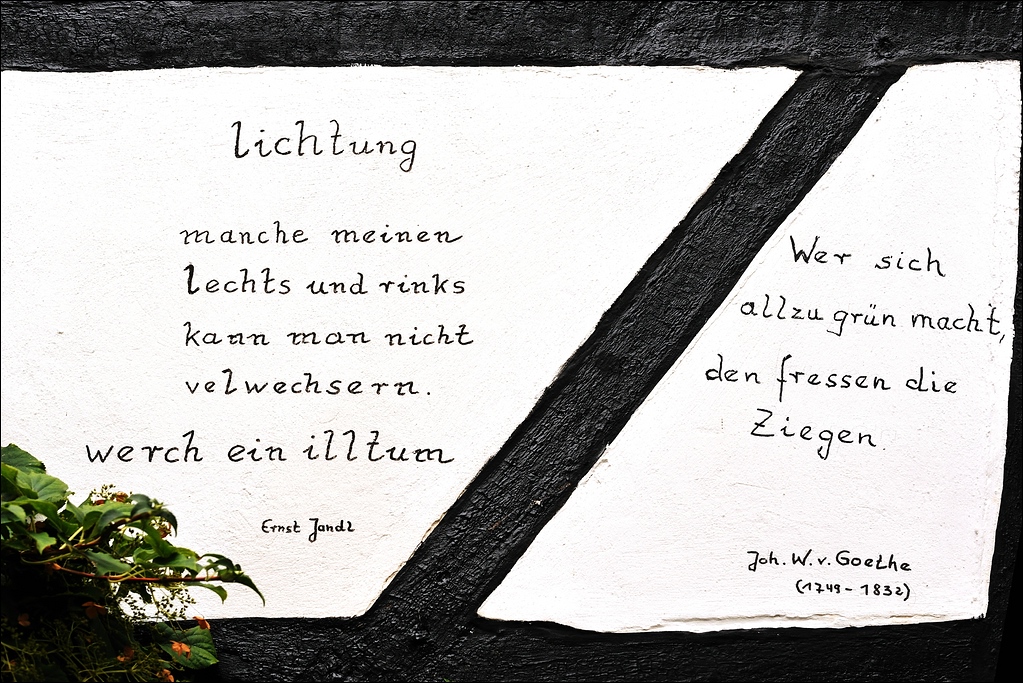 lichtung
manche meinen
lechts und rinks
kann man nicht
velwechsern.
werch ein illtum
Ernst Jandl
Wer sich
allzu grün macht,
den fressen die
Ziegen.
Joh. W. v. Goethe
(1749 - 1832)